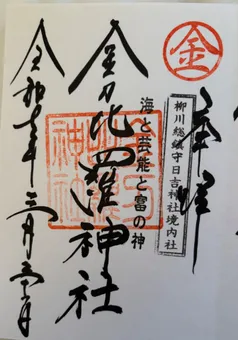 奉拝
金
柳川総鎮守日吉神社境内社
海と芸能と富の神
金刀比羅神社
令和七年三月三十日